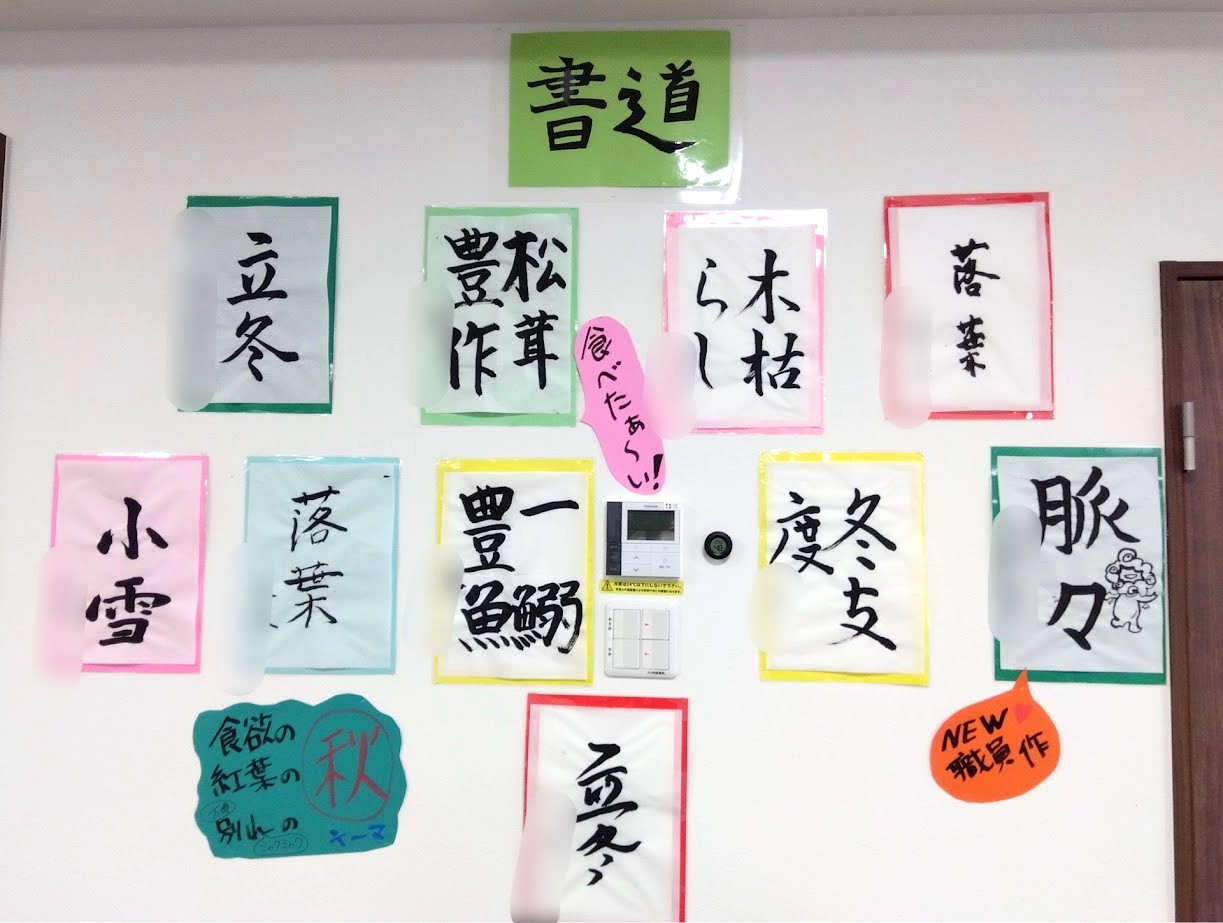 書道
立冬
松茸
豊作
木枯
らし
落葉
食べたぁ〜い!
小雪
落葉
一鰯
豊魚
冬支
度
脈
々
食欲の
紅葉の
別れの
秋
テーマ
ミャクミャク
NEW
職員作
立冬